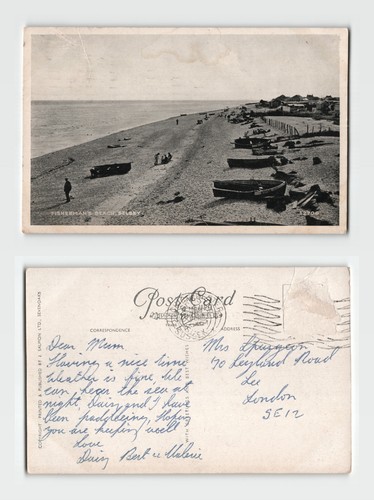 FISHERMAN'S BEACH, SELSEY.
Post Card
CORRESPONDENCE
ADDRESS
COPYRIGHT PRINTED & PUBLISHED BY J. SALMON LTD., SEVENOAKS
Dear Mum
Having a nice time
Weather is fine, We
can hear the sea at
night, Daisy and I have
been paddeling, Hoping
you are keeping well
Love
Daisy Bert & Valerie
Mrs Spurgeon
70 Leyland Road
Lee
London
SE12